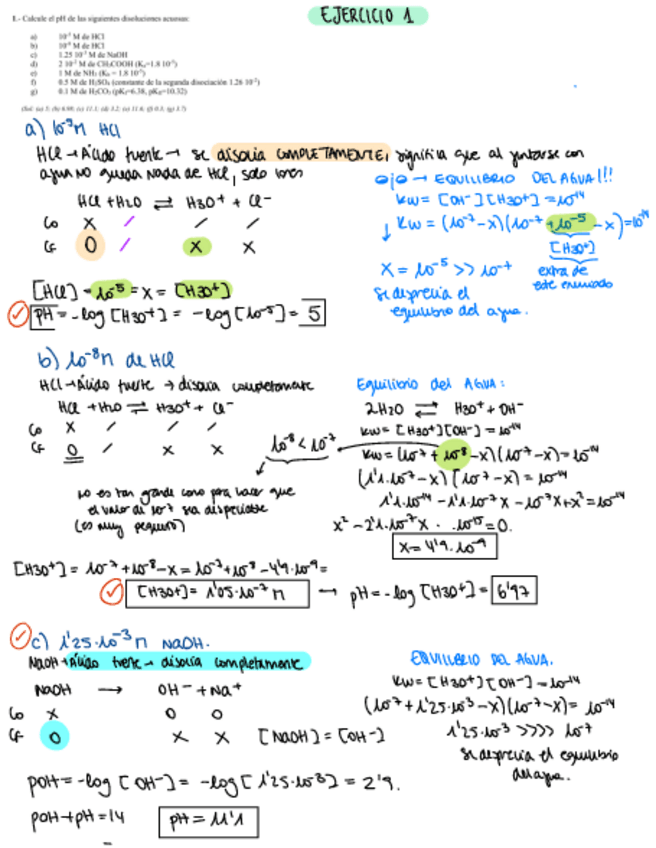 EJERCICIO 1
1.- Calcule el pH de las siguientes disoluciones acuosas:
a) 10⁻⁵ M de HCl
b) 10⁻⁸ M de HCl
c) 1.25 10⁻³ M de NaOH
d) 2 10⁻² M de CH₃COOH (Kₐ=1.8 10⁻⁵)
e) 1 M de NH₃ (K_b = 1.8 10⁻⁵)
f) 0.5 M de H₂SO₄ (constante de la segunda disociación 1.26 10⁻²)
g) 0.1 M de H₂CO₃ (pK₁=6.38, pK₂=10.32)
(Sol: (a) 5; (b) 6.98; (c) 11.1; (d) 3.2; (e) 11.6; (f) 0.3; (g) 3.7)
a) 10⁻⁵M HCl
HCl → Ácido fuerte → se disocia COMPLETAMENTE, significa que al juntarse con
agua no queda nada de HCl, solo iones
HCl + H2O ⇌ H3O⁺ + Cl⁻
Co X / / /
CF 0 / X X
[HCl] = 10⁻⁵ = X = [H3O⁺]
pH = -log [H3O⁺] = -log [10⁻⁵] = 5
OJO → EQUILIBRIO DEL AGUA!!!
Kw = [OH⁻][H3O⁺] = 10⁻¹⁴
Kw = (10⁻⁷-x)(10⁻⁷+10⁻⁵-x) = 10⁻¹⁴
[H3O⁺]
extra de
este enunciado
X = 10⁻⁵ >> 10⁻⁷
Se desprecia el
equilibrio del agua.
b) 10⁻⁸M de HCl
HCl → Ácido fuerte → disocia completamente
HCl + H2O ⇌ H3O⁺ + Cl⁻
Co X / / /
CF 0 / X X
10⁻⁸ < 10⁻⁷
no es tan grande como para hacer que
el valor de 10⁻⁷ sea despreciable
(es muy pequeño)
Equilibrio del AGUA:
2H2O ⇌ H3O⁺ + OH⁻
Kw = [H3O⁺][OH⁻] = 10⁻¹⁴
Kw = (10⁻⁷ + 10⁻⁸ - x)(10⁻⁷-x) = 10⁻¹⁴
(1'1·10⁻⁷-x)(10⁻⁷-x) = 10⁻¹⁴
1'1·10⁻¹⁴ - 1'1·10⁻⁷x - 10⁻⁷x + x² = 10⁻¹⁴
x² - 2'1·10⁻⁷x · 10⁻¹⁵ = 0.
X = 4'9·10⁻⁹
[H3O⁺] = 10⁻⁷ + 10⁻⁸ - x = 10⁻⁷ + 10⁻⁸ - 4'9·10⁻⁹ =
[H3O⁺] = 1'05·10⁻⁷ M → pH = -log [H3O⁺] = 6'97
c) 1'25·10⁻³M NaOH.
NaOH → Ácido fuerte → disocia completamente
NaOH → OH⁻ + Na⁺
Co X 0 0
CF 0 X X [NaOH] = [OH⁻]
pOH = -log [OH⁻] = -log [1'25·10⁻³] = 2'9.
pOH + pH = 14 pH = 11'1
EQUILIBRIO DEL AGUA.
Kw = [H3O⁺][OH⁻] = 10⁻¹⁴
(10⁻⁷ + 1'25·10⁻³ - x)(10⁻⁷-x) = 10⁻¹⁴
1'25·10⁻³ >>>> 10⁻⁷
Se desprecia el equilibrio
del agua.